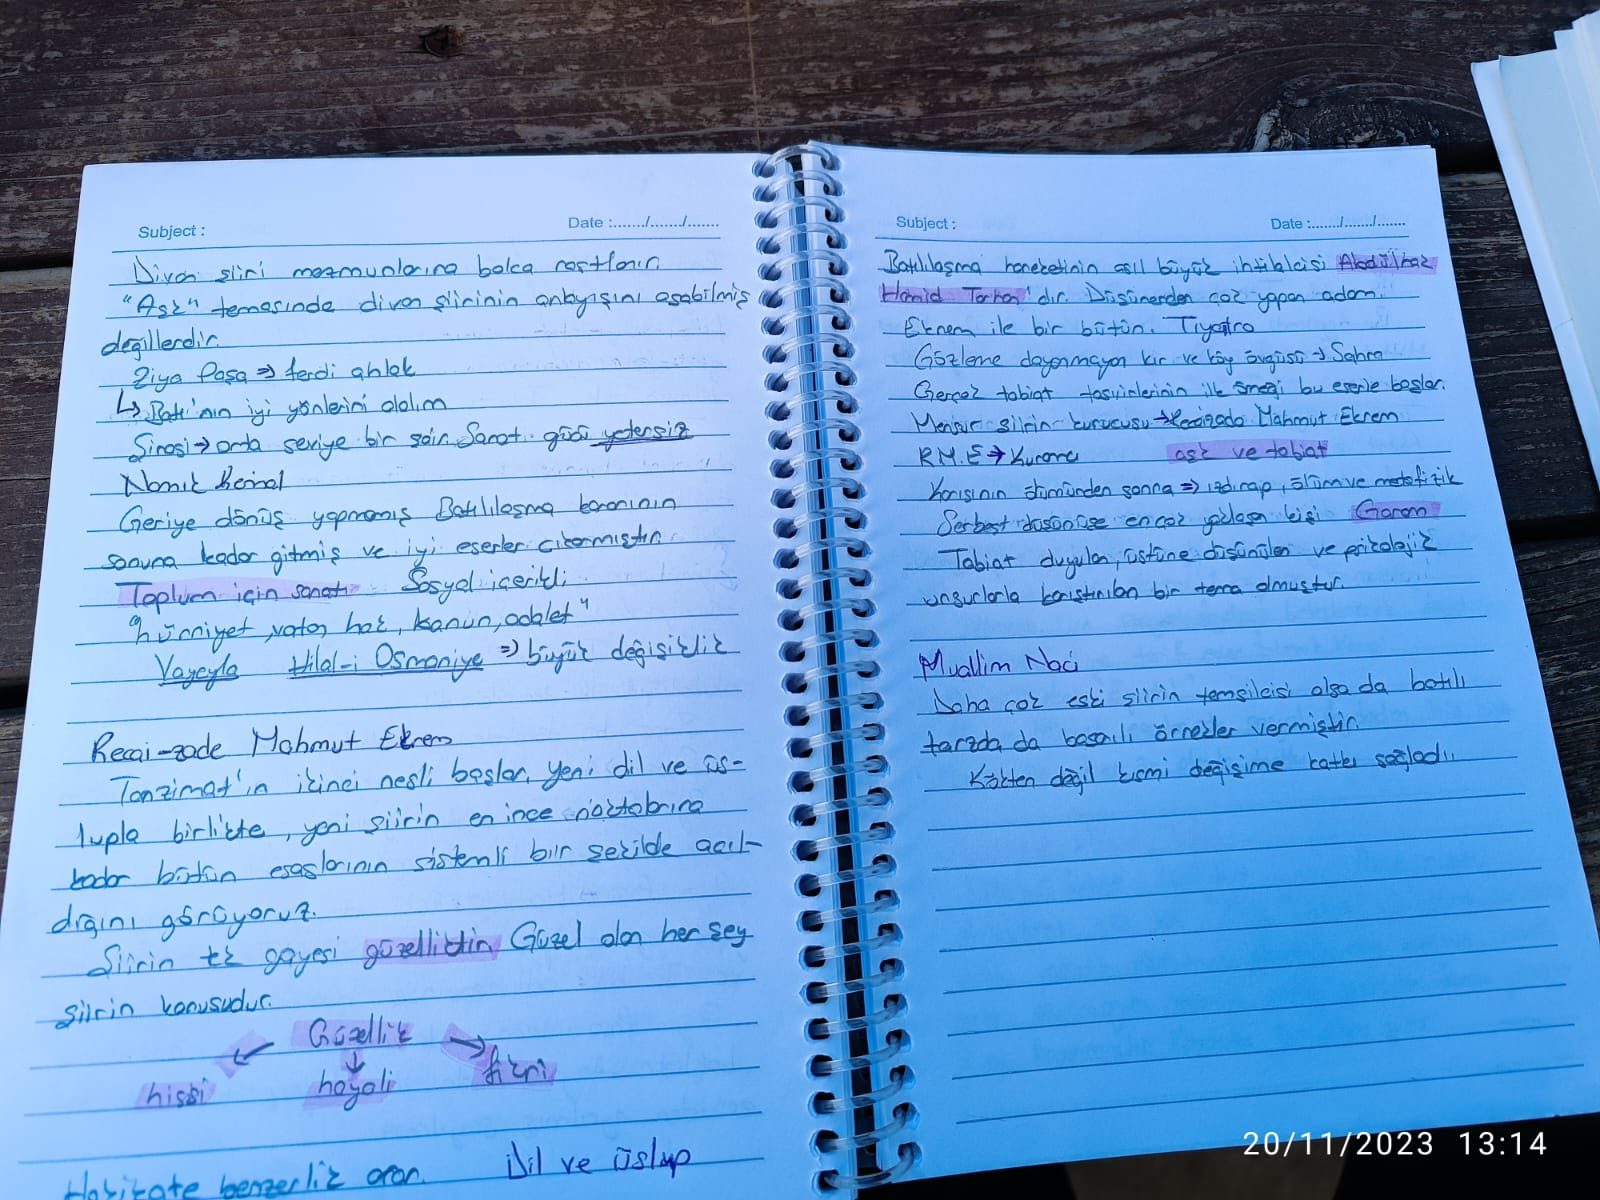 Subject :
Date :....../......./.......
Divan şiiri mazmunlarına bolca rastlanır.
"Aşk" temasında divan şiirinin anlayışını aşabilmiş
değillerdir.
Ziya Paşa ⇒ ferdi ahlak
↳ Batı'nın iyi yönlerini alalım
Şinasi ⇒ orta seviye bir şair. Sanat gücü yetersiz
Namık Kemal
Geriye dönüş yapmamış Batılılaşma kararının
sonuna kadar gitmiş ve iyi eserler çıkarmıştır.
Toplum için sanat. Sosyal içerikli
"hürriyet, vatan, hak, kanun, adalet"
Vaveyla Hilal-i Osmaniye ⇒ büyük değişiklik
Recai-zade Mahmut Ekrem
Tanzimat'ın ikinci nesli başlar, yeni dil ve üs-
lupla birlikte, yeni şiirin en ince noktalarına
kadar bütün esaslarının sistemli bir şekilde açıl-
dığını görüyoruz.
Şiirin tek gayesi güzelliktir. Güzel olan her şey
şiirin konusudur.
Güzellik
hissi hayali fikri
Hakikate benzerlik arar. Dil ve üslup
Subject :
Date :....../......./.......
Batılılaşma hareketinin asıl büyük ihtilalcisi Abdülhak
Hamid Tarhan'dır. Düşünerden çok yapan adam.
Ekrem ile bir bütün. Tiyatro
Gözleme dayanmayan kır ve köy övgüsü → Sahra
Gerçek tabiat tasvirlerinin ilk örneği bu eserle başlar.
Mensur şiirin kurucusu → Recaizade Mahmut Ekrem
R.M.E → Kuramcı aşk ve tabiat
Karısının ölümünden sonra ⇒ ızdırap, ölüm ve metafizik
Serbest düşünüşe en çok yaklaşan kişi Garam
Tabiat duyulan, üstüne düşünülen ve psikolojik
unsurlarla karıştırılan bir tema olmuştur.
Muallim Naci
Daha çok eski şiirin temsilcisi olsa da batılı
tarzda da başarılı örnekler vermiştir.
Kökten değil kısmi değişime katkı sağladı.
20/11/2023 13:14